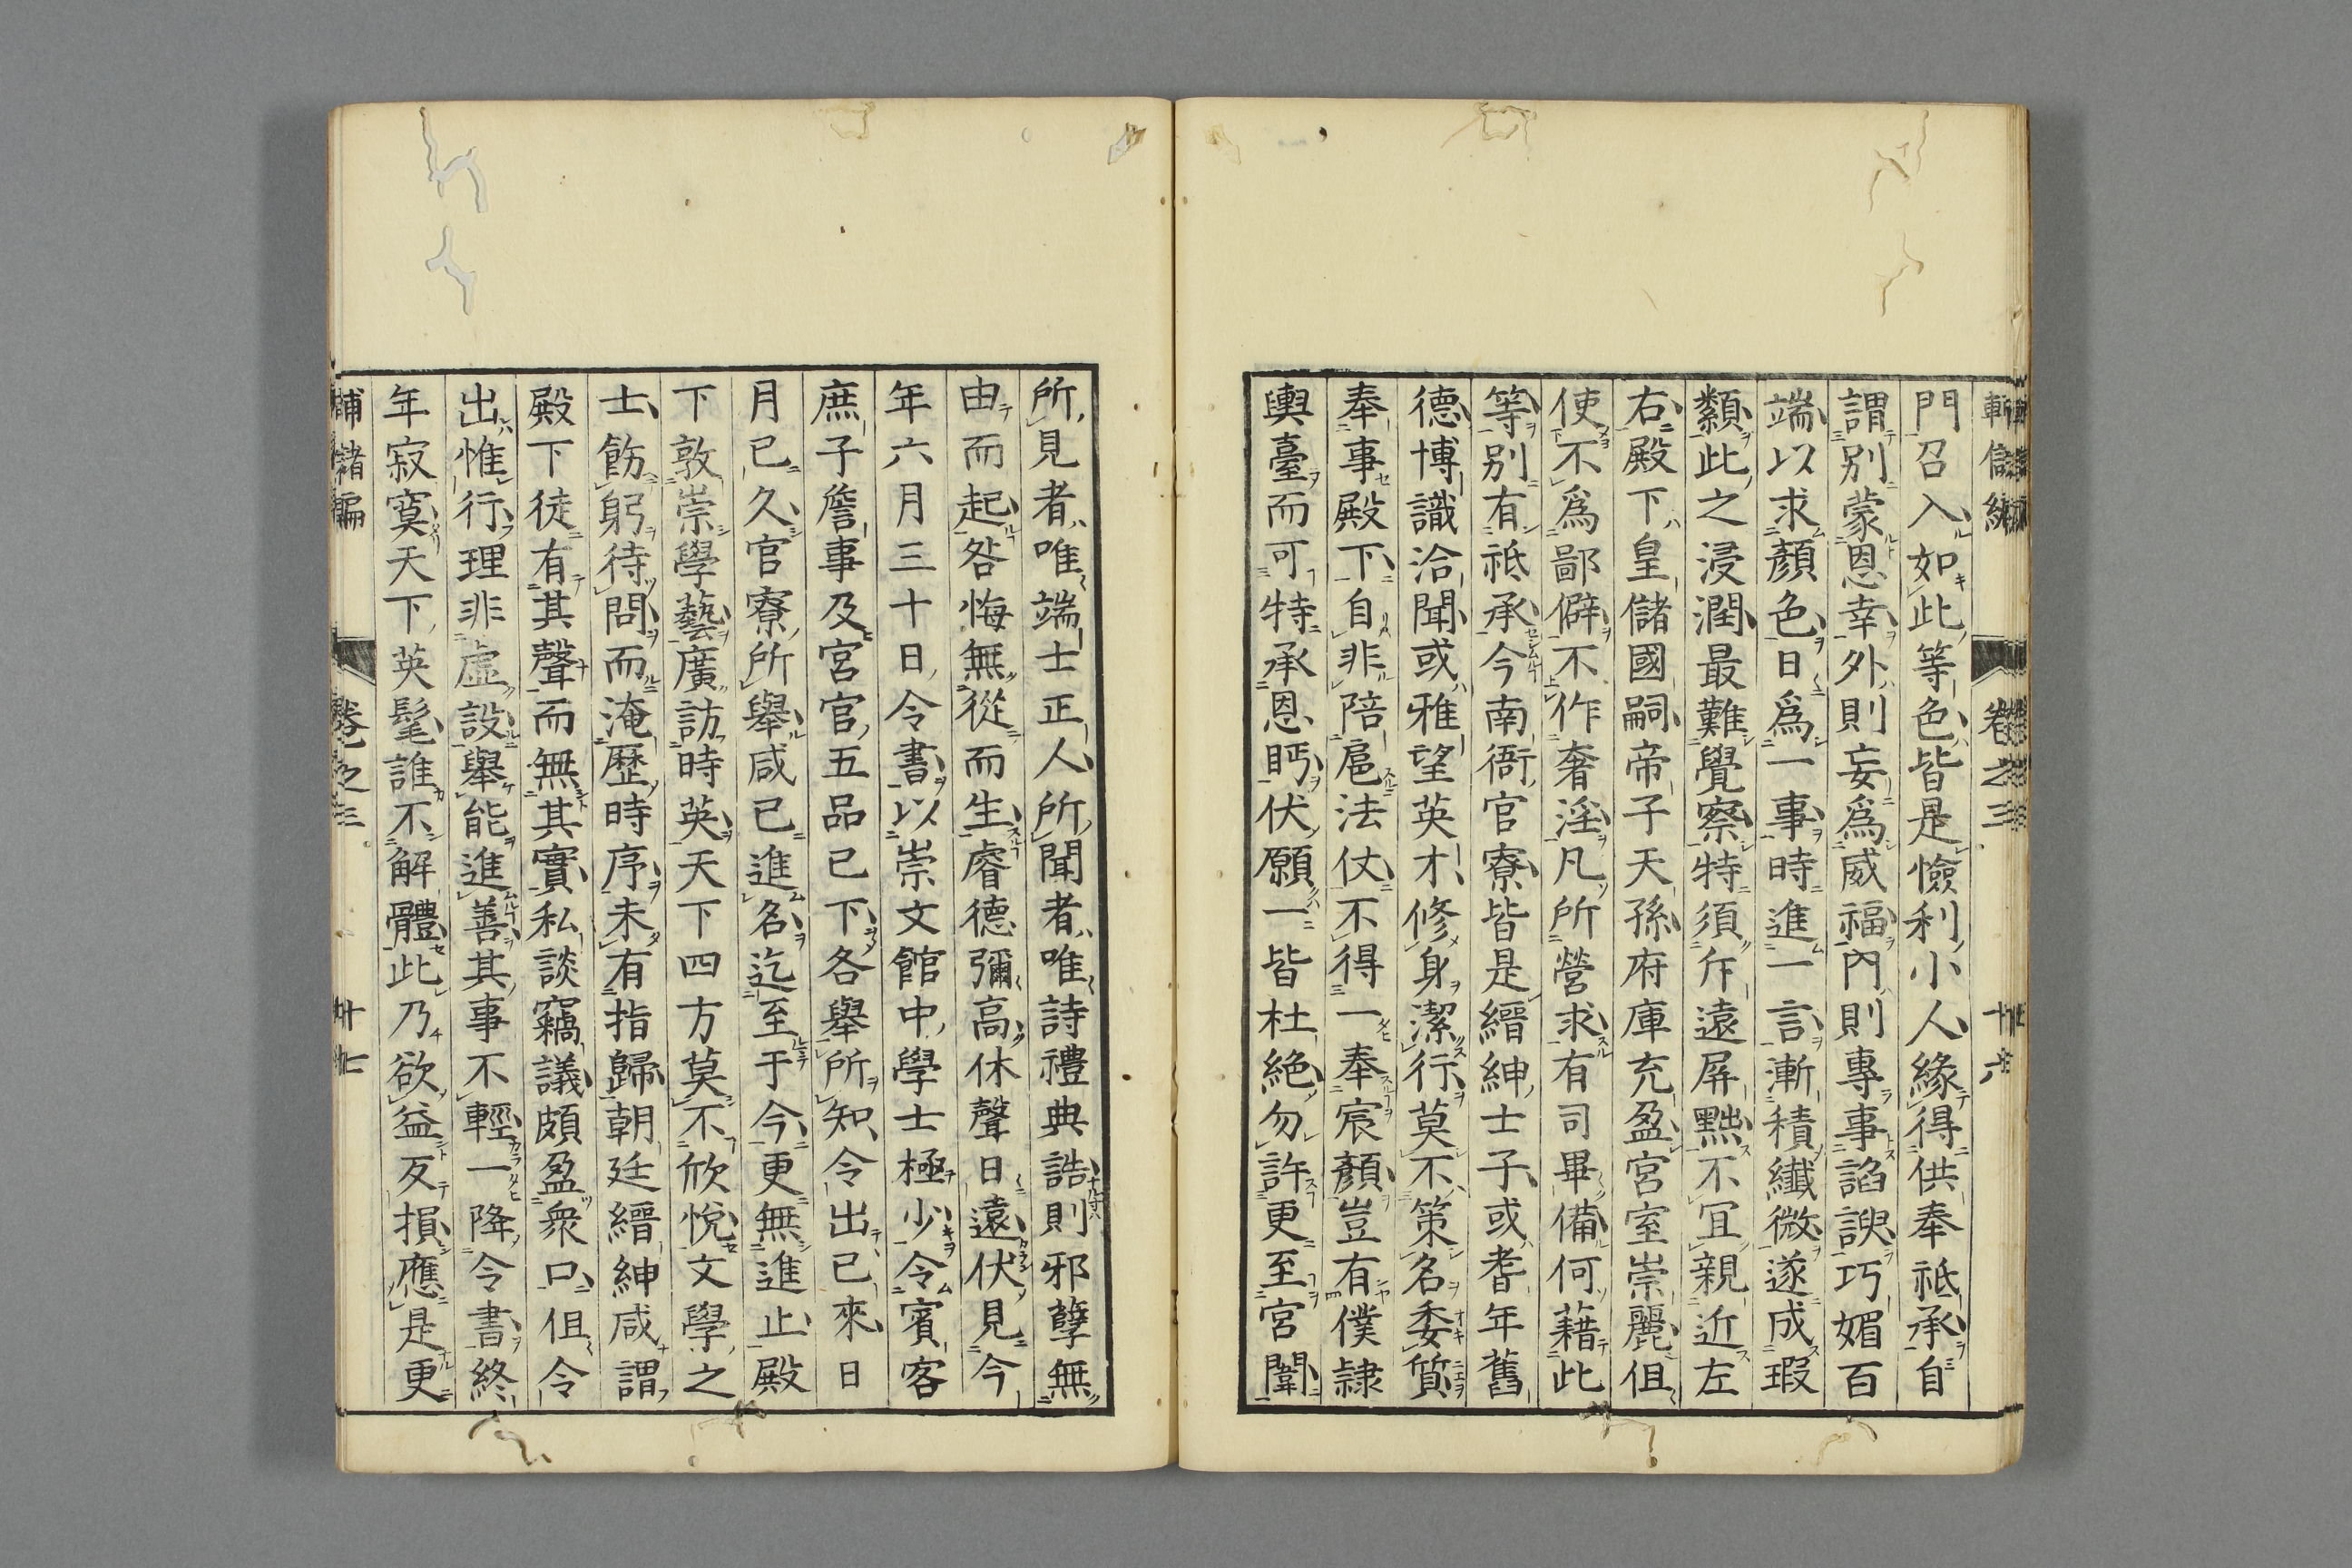 門召入如此等色皆是憸利小人緣得供奉祗承自
謂別蒙恩幸外則妄爲威福內則專事諂諛巧媚百
端以求顏色日爲一事時進一言漸積纖微遂成瑕
纇此之浸潤最難覺察特須斥遠屏黜不宜親近左
右殿下皇儲國嗣帝子天孫府庫充盈宮室崇麗但
使不爲鄙僻不作奢淫凡所營求有司畢備何藉此
等別有祗承今南衙官寮皆是縉紳士子或耆年舊
德博識洽聞或雅望英才修身潔行莫不策名委質
奉事殿下自非陪扈法仗不得一奉宸顏豈有僕隷
輿臺而可特承恩眄伏願一皆杜絶勿許更至宮闈
所見者唯端士正人所聞者唯詩禮典誥則邪孽無
由而起咎悔無從而生睿德彌高休聲日遠伏見今
年六月三十日令書以崇文館中學士極少令賓客
庶子詹事及宮官五品已下各舉所知令出已來日
月已久官寮所舉咸已進名迄至于今更無進止殿
下敦崇學藝廣訪時英天下四方莫不欣悅文學之
士飭躬待問而淹歷時序未有指歸朝廷縉紳咸謂
殿下徒有其聲而無其實私談竊議頗盈衆口但令
出惟行理非虛設舉能進善其事不輕一降令書終
年寂寞天下英髦誰不解體此乃欲益反損應是更
卷之三